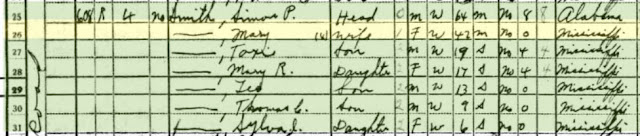 25 608 R 4 no Smith, Simon P. Head 0 M W 64 M No 8 8 Alabama
26 ——, Mary Wife 1 F W 42 M No 0 Mississippi
27 ——, Toxi Son 2 M W 19 S No 4 4 Mississippi
28 ——, Mary R. Daughter 2 F W 17 S No 4 4 Mississippi
29 ——, Leo Son 2 M W 13 S No 0 Mississippi
30 ——, Thomas C. Son 2 M W 9 S No 0 Mississippi
31 ——, Sylvia J. Daughter 2 F W 6 S No 0 Mississippi